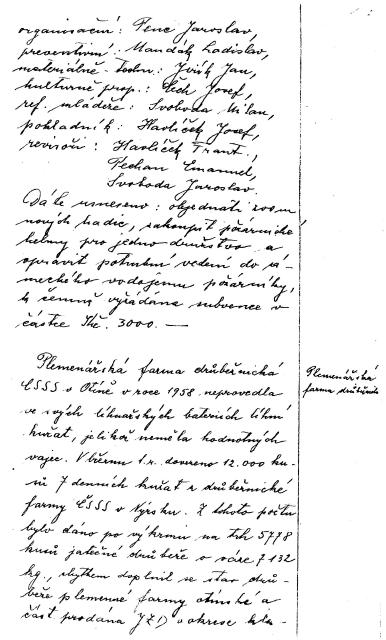 organisační: Penc Jaroslav,
preventivní: Mandák Ladislav,
materiálně-techn.: Jvišk Jan,
kulturně prop.: Čech Josef,
ref. mládeže: Svoboda Milan,
pokladník: Havlíček Josef,
revisoři: Havlíček Frant.,
Pechan Emanuel,
Svoboda Jaroslav.
Dále usneseno: objednati 200 m
nových hadic, zakoupit požárnické
helmy pro jedno družstvo a
opravit potrubní vedení do zá-
meckého vodojemu požárníky,
k čemuž vyžádána subvence v
částce Kč. 3000.—
Plemenářská farma drůbežnická
ČSSS v Otíně v roce 1958 neprovedla
ve svých líhnařských bateriích líhní
kuřat, jelikož neměla hodnotných
vajec. V březnu t.r. dovezeno 12.000 ku-
sů 7 denních kuřat z drůbežnické
farmy ČSSS v Výrsku. Z tohoto počtu
bylo dáno po výkrmu na trh 5778
kusů jatečné drůbeže o váze 7132
kg., zbytkem doplnil se stav drů-
beže plemenné farmy otínské a
část prodána JZD v okrese kla-
Plemenářská
farma drůbežnická